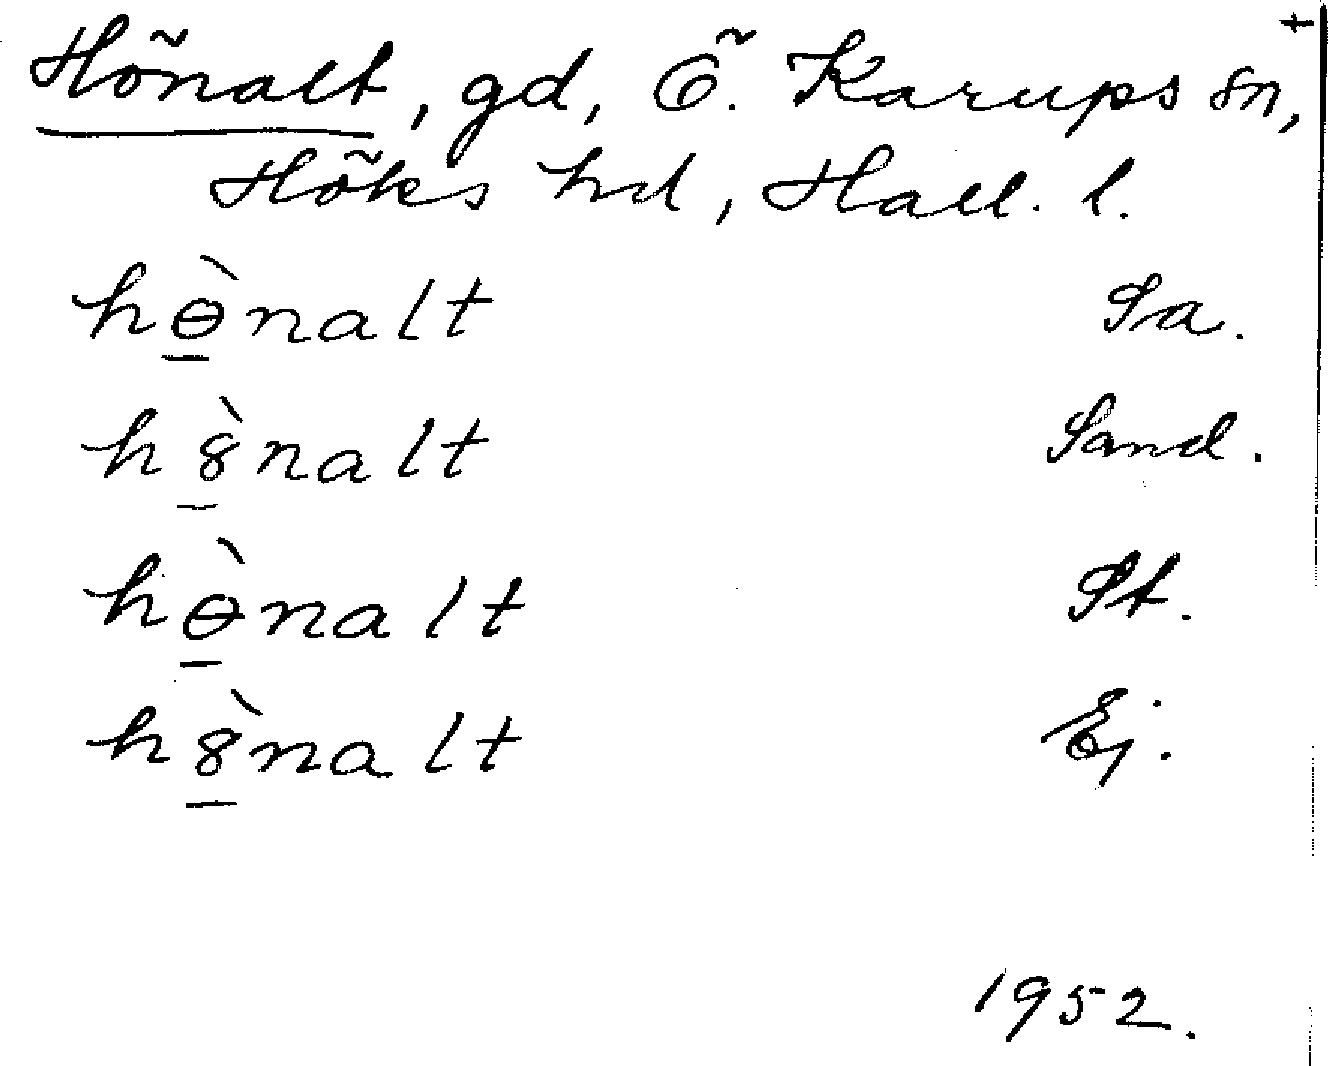 Hönalt, gd, Ö. Karups sn, †
Höks hd, Hall. l.
hɵ̠̀nalt Sa.
h8̠̀nalt Sand.
hɵ̠̀nalt St.
h8̠̀nalt Ej.
1952.